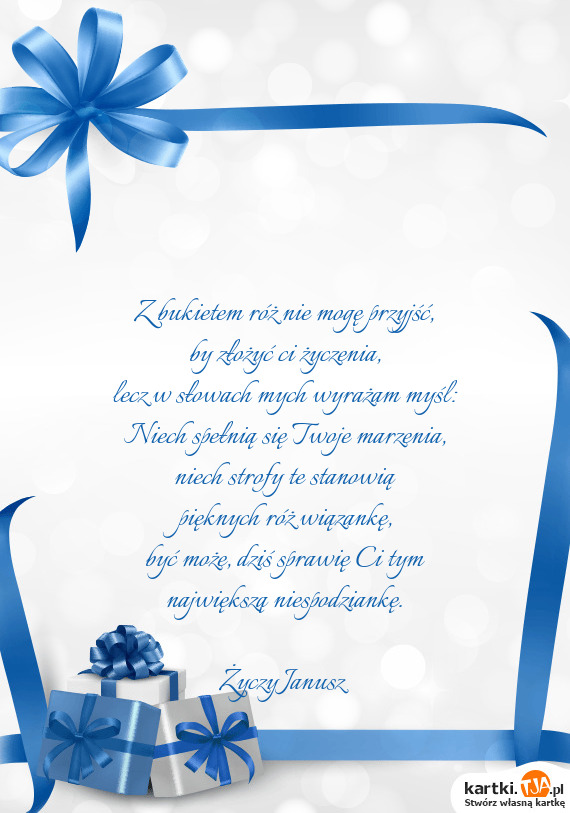 Z bukietem róż nie mogę przyjść,
by złożyć ci życzenia,
lecz w słowach mych wyrażam myśl:
Niech spełnią się Twoje marzenia,
niech strofy te stanowią
pięknych róż wiązankę,
być może, dziś sprawię Ci tym
największą niespodziankę.
Życzy Janusz
kartki.TJA.pl
Stwórz własną kartkę